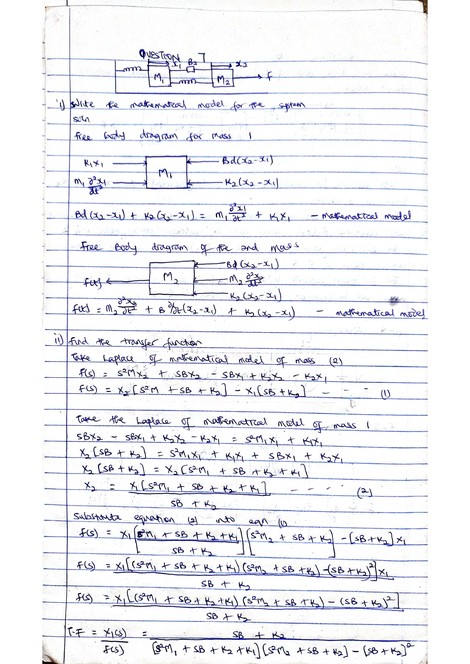 QUESTION 7
x₁ B₂ x₂
M₁ M₂ F
i) Write the mathematical model for the system
soln
free body diagram for mass 1
K₁x₁ Bd(x₂-x₁)
M₁
m₁ ∂²x₁/dt² K₂(x₂-x₁)
Bd(x₂-x₁) + K₂(x₂-x₁) = m₁ ∂²x₁/dt² + K₁x₁ - mathematical model
Free Body diagram of the 2nd mass
Bd(x₂-x₁)
f(t) M₂ M₂ ∂²x₂/dt²
K₂(x₂-x₁)
f(t) = M₂ ∂²x₂/dt² + B ∂/∂t(x₂-x₁) + K₂(x₂-x₁) - mathematical model
ii) Find the transfer function
Take Laplace of mathematical model of mass (2)
F(s) = S²Mx₂ + SBx₂ - SBx₁ + K₂x₂ - K₂x₁
F(s) = x₂[S²M + SB + K₂] - x₁[SB + K₂] - - - (1)
Take the Laplace of mathematical model of mass 1
SBx₂ - SBx₁ + K₂x₂ - K₂x₁ = S²M₁x₁ + K₁x₁
x₂[SB + K₂] = S²M₁x₁ + K₁x₁ + SBx₁ + K₂x₁
x₂[SB + K₂] = x₂[S²M₁ + SB + K₂ + K₁]
x₂ = x₁[S²M₁ + SB + K₂ + K₁] - - - - (2)
SB + K₂
Substitute equation (2) into eqn (1)
f(s) = x₁[S²M₁ + SB + K₂ + K₁][S²M₂ + SB + K₂] - [SB + K₂]x₁
SB + K₂
f(s) = x₁[(S²M₁ + SB + K₂ + K₁)(S²M₂ + SB + K₂) - (SB + K₂)²]x₁
SB + K₂
f(s) = x₁[(S²M₁ + SB + K₂ + K₁)(S²M₂ + SB + K₂) - (SB + K₂)²]
SB + K₂
T.F = x₁(s) = SB + K₂
f(s) [S²M₁ + SB + K₂ + K₁][S²M₂ + SB + K₂] - [SB + K₂]²